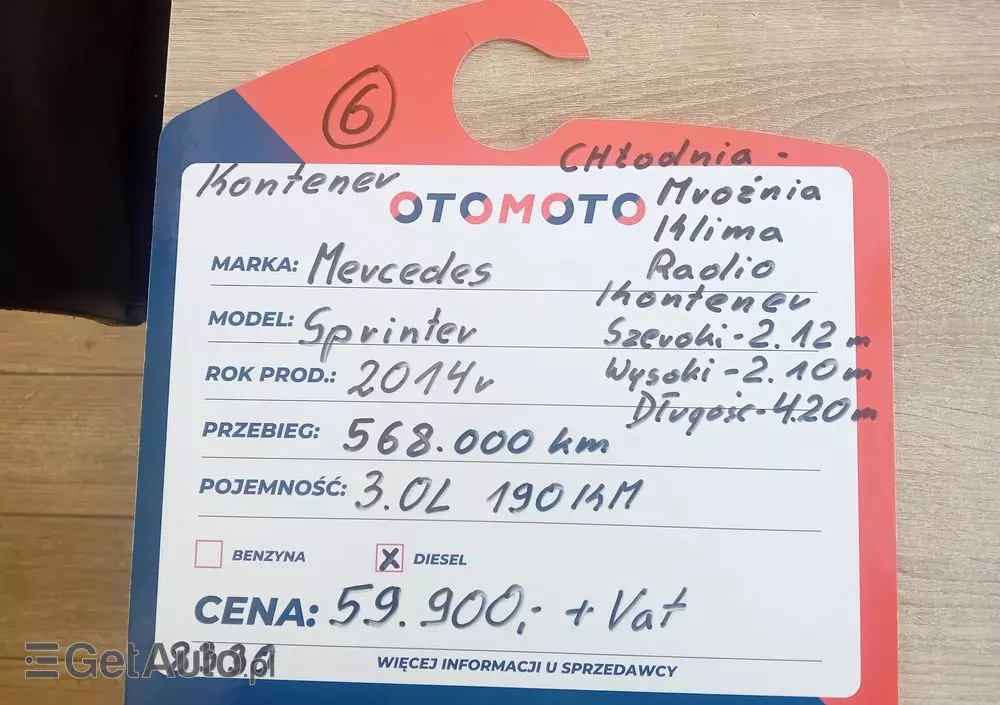 6
Kontener
CHłodnia -
OTOMOTO
Mroźnia
Klima
MARKA: Mercedes
Radio
Kontener
MODEL: Sprinter
Szeroki - 2.12 m
ROK PROD.: 2014r
Wysoki - 2.10 m
Długość - 4.20 m
PRZEBIEG: 568.000 km
POJEMNOŚĆ: 3.0L 190 KM
BENZYNA
X DIESEL
CENA: 59.900,- + Vat
WIĘCEJ INFORMACJI U SPRZEDAWCY
GetAuto.pl